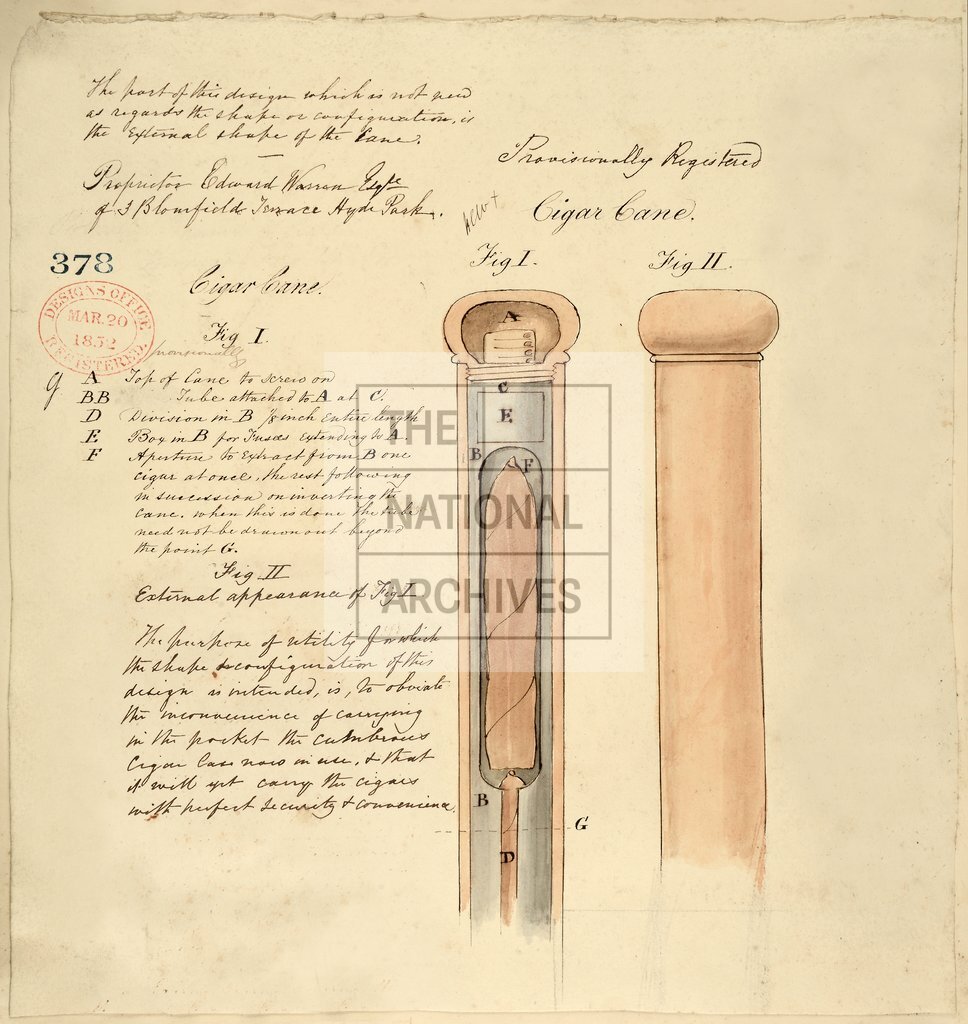 The part of this design which is not new
as regards the shape or configuration, is
the External shape of the Cane.
Proprietor Edward Warren Esqre
of 3 Blomfield Terrace Hyde Park.
Provisionally Registered
Cigar Cane.
Fig I.
Fig II.
378
DESIGNS OFFICE
MAR. 20
1852
REGISTERED.
Cigar Cane.
Fig I.
provisionally
A Top of Cane to screw on
BB Tube attached to A at C.
D Division in B 1/8 inch Entire length
E Box in B for Fusees extending to A.
F Aperture to Extract from B one
cigar at once, the rest following
in succession on inverting the
Cane. when this is done the tube
need not be drawn out beyond
the point G.
Fig II
External appearance of Fig I.
The purpose of utility for which
the shape & configuration of this
design is intended, is, to obviate
the inconvenience of carrying
in the pocket the cumbrous
Cigar Case now in use, & that
it will yet carry the cigars
with perfect security & convenience.
A
C
E
B
F
B
G
D
THE
NATIONAL
ARCHIVES